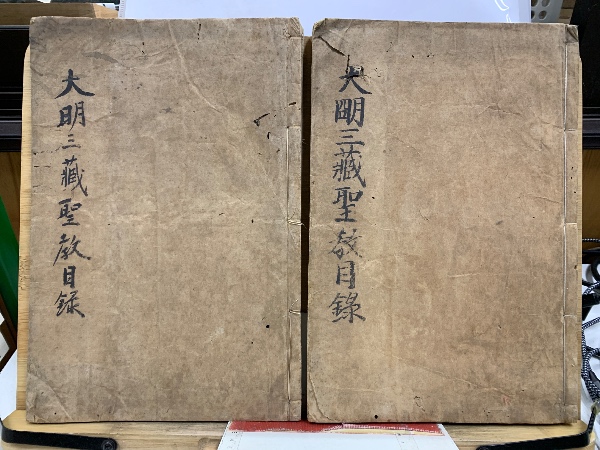 大明三藏聖教目録
大明三藏聖教目錄